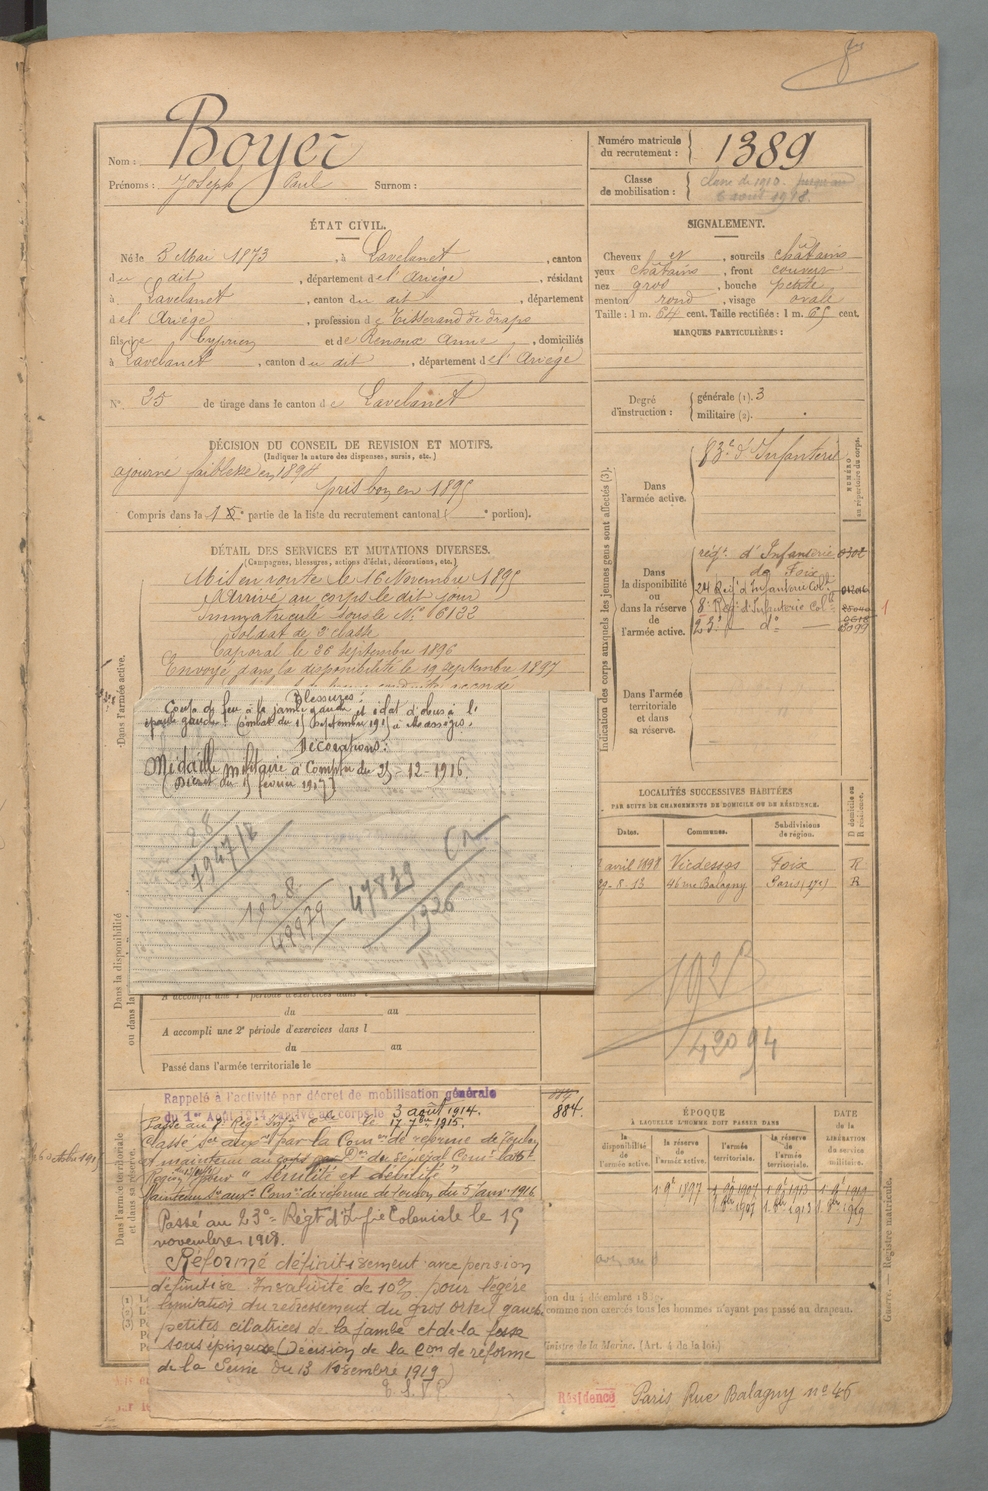 Nom : Boyer
Prénoms : Joseph Paul Surnom :
Numéro matricule du recrutement : 1389
Classe de mobilisation : Classe de 1910.
ÉTAT CIVIL.
Né le 3 Mai 1873, à Lavelanet, canton
du dit, département de l'Ariège, résidant
à Lavelanet, canton du dit, département
de l'Ariège, profession de Tisserand de draps
fils de Cyprien et de Renoux Anne, domiciliés
à Lavelanet, canton du dit, département de l'Ariège
N° 35 de tirage dans le canton de Lavelanet
SIGNALEMENT.
Cheveux et, sourcils châtains
yeux châtains, front couvert
nez gros, bouche petite
menton rond, visage ovale
Taille : 1 m. 64 cent. Taille rectifiée : 1 m. 65 cent.
MARQUES PARTICULIÈRES :
Degré d'instruction : générale (1). 3
militaire (2).
DÉCISION DU CONSEIL DE REVISION ET MOTIFS.
(Indiquer la nature des dispenses, sursis, etc.)
ajourné faiblesse en 1894
pris bon en 1895
Compris dans la 1 partie de la liste du recrutement cantonal ( portion).
DÉTAIL DES SERVICES ET MUTATIONS DIVERSES.
(Campagnes, blessures, actions d'éclat, décorations, etc.)
Mis en route le 16 Novembre 1895
Arrivé au corps le dit jour
Immatriculé sous le N° 6122
Soldat de 2e classe
Caporal le 26 septembre 1896
Envoyé dans la disponibilité le 19 septembre 1897
accordé
Dans l'armée active.
Blessures :
Coup de feu à la jambe gauche et éclat d'obus à l'
épaule gauche. Combat du 15 Septembre 1915 à Massiges.
Décorations :
Médaille militaire à Compter du 25-12-1916.
(Décret du 15 février 1917)
28
7947/E
1928
49979
47839
1926
Dans la disponibilité
ou dans la
A accompli une 1e période d'exercices dans l
du au
A accompli une 2e période d'exercices dans l
du au
Passé dans l'armée territoriale le
Indication des corps auxquels les jeunes gens sont affectés (3).
NUMÉRO au répertoire du corps.
Dans l'armée active.
83e d'Infanterie
Dans la disponibilité ou dans la réserve de l'armée active.
régt. d'Infanterie
de Foix
24 Régt d'Infanterie Colle
8e Régt d'Infanterie Colle
23e do
Dans l'armée territoriale et dans sa réserve.
LOCALITÉS SUCCESSIVES HABITÉES
PAR SUITE DE CHANGEMENTS DE DOMICILE OU DE RÉSIDENCE.
Dates. Communes. Subdivisions de région. D domicile ou R résidence.
avril 1898 Vicdessos Foix R
29-8-13 46 rue Balagny Paris (17e) R
42094
Dans l'armée territoriale et dans sa réserve.
Rappelé à l'activité par décret de mobilisation générale
du 1er Août 1914. arrivé au corps le 3 août 1914.
Passé au 8e Régt Infie Cle le 17 7bre 1915.
884.
Classé Ser auxre par la Comon de réforme de Toulon
et maintenu au corps
"sénilité et débilité"
Maintenu Ser auxre Comon de réforme de Toulon du 5 Janv. 1916
Passé au 23e Régt d'Infie Coloniale le 15
novembre 1918.
Réformé définitivement avec pension
définitive. Invalidité de 10% pour légère
limitation du redressement du gros orteil gauche
petites cicatrices de la jambe et de la fosse
sous épineuse (Décision de la Com de réforme
de la Seine du 13 Novembre 1919)
ÉPOQUE
À LAQUELLE L'HOMME DOIT PASSER DANS
la disponibilité de l'armée active. la réserve de l'armée active. l'armée territoriale. la réserve de l'armée territoriale.
DATE DE LA LIBÉRATION du service militaire.
1. 9e 1897
1. 8bre 1907 1. 8bre 1913 1. 8bre 1919
comme non exercés tous les hommes n'ayant pas passé au drapeau.
Ministre de la Marine. (Art. 4 de la loi.)
Guerre. — Registre matricule.
Résidence Paris Rue Balagny n° 46